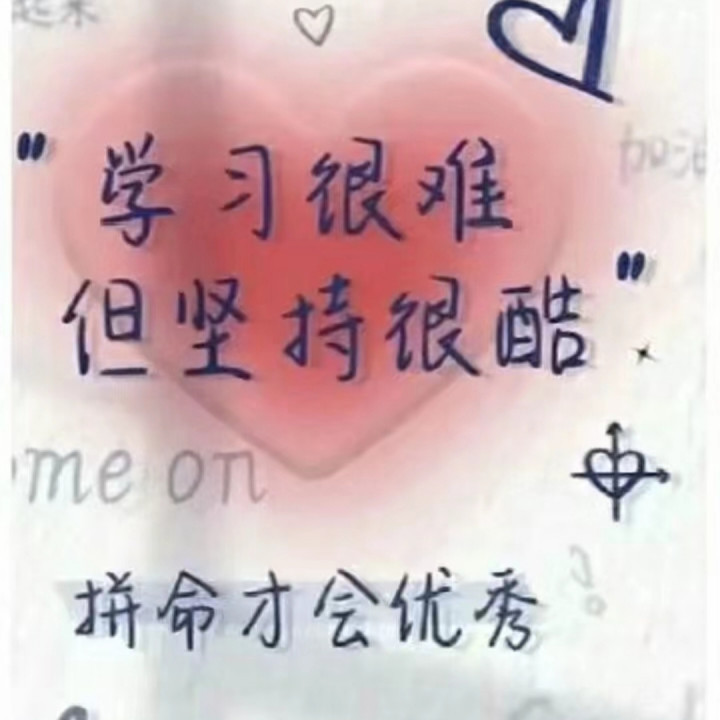 起来
加油
"学习很难
但坚持很酷"
me on
拼命才会优秀